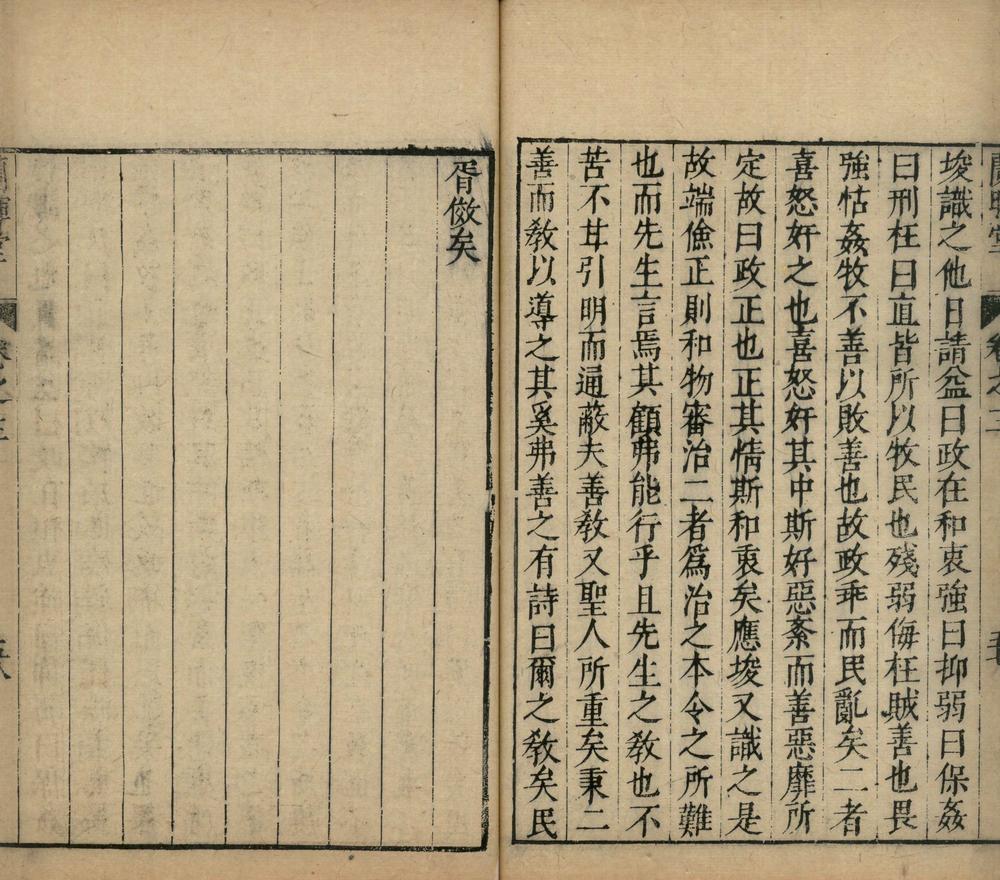 埈識之他日請益曰政在和衷強曰抑弱曰保姦
曰刑枉曰直皆所以牧民也殘弱侮枉賊善也畏
強怙姦牧不善以敗善也故政乖而民亂矣二者
喜怒奸之也喜怒奸其中斯好惡紊而善惡靡所
定故曰政正也正其情斯和衷矣應埈又識之是
故端儉正則和物審治二者爲治之本令之所難
也而先生言焉其顧弗能行乎且先生之教也不
苦不甘引明而通蔽夫善教又聖人所重矣秉二
善而教以導之其奚弗善之有詩曰爾之教矣民
胥傚矣